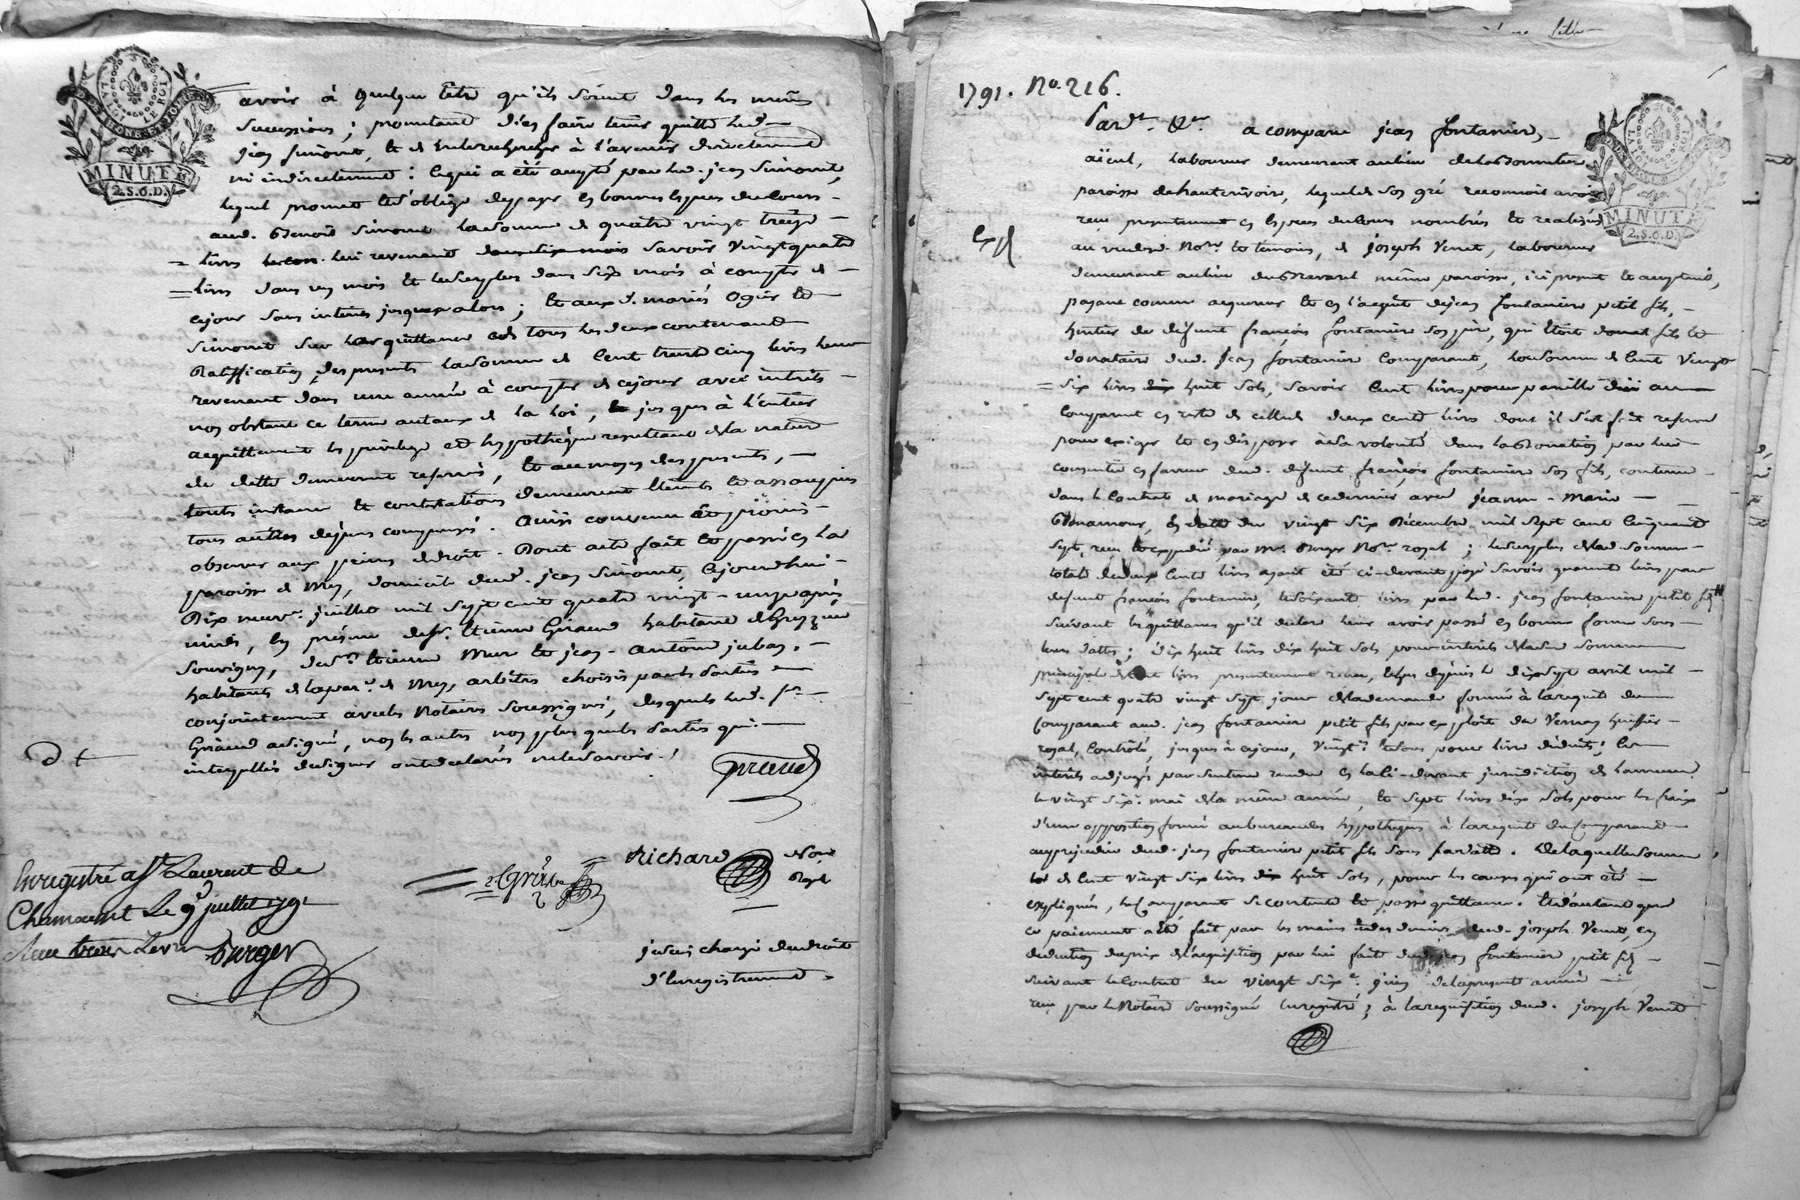 LA LOI LE ROI
MINUTE
2.S.6.D.
avoir à quelque titre qu'ils soient dans les mêmes
successions; promettant d'en faire tenir quitte led.
jean simont, et de n'en rechercher à l'avenir directement
ni indirectement: ce qui a été accepté par led. jean simont,
lequel promet et s'oblige de payer en bonnes espèces du cours
aud. Benoit simont la somme de quatre vingt treize
livres lui revenant savoir vingt quatre
livres dans un mois et le surplus dans six mois à compter de
ce jour sans intérêts jusques alors; et aux d. mariés Ogier et
simont sur les quittances de tous les deux contenant
Ratification des presents la somme de Cent trente cinq livres leur
revenant dans une année à compter de ce jour avec intérêts
nonobstant ce terme au taux de la loi, jusques à l'entier
acquittement les privilege et hypothèque resultant de la nature
de dette demeurant reservés, et au moyen des presents,
touts instance et contestations demeurent éteints et assoupies
tous autres dépens compensés. Ainsi convenu et promis
observer aux peines de droit. Dont acte fait et passé en la
paroisse de Mey, domicile dud. jean simont, ce jourd'hui
Dix neuv.e juillet mil sept cent quatre vingt-un après
midi, en présence de sr. Etienne Giraud habitant de Grezieu
souvigny, de sr. Etienne Mure et jean-antoine jubay,
habitants de la par.e de Mey, arbitres choisis par les Parties
conjointement avec les Notaires soussignés, desquels led. sr.
Giraud a signé, non les autres non plus que les Parties qui
interpellés de signer ont déclarés ne le savoir.
Giraud
Enregistré a St Laurent de
Chamousset le juillet 1791
Reçu trois Livres Burger
Richard Nore
Royl
je suis chargé du droit
d'Enregistrement
1791. No. 216.
LA LOI LE ROI
MINUTE
2.S.6.D.
Pardt. &er a comparu jean fontanier,
aïeul, laboureur demeurant au lieu de
paroisse de hauterivoire, lequel de son gré reconnoit avoir
reçu présentement en espèces du cours nombrés et realisés
au vu desd. Nores et temoins, de joseph Venet, laboureur
demeurant au lieu du même paroisse, ici present et acceptant,
payant comme acquereur et en l'acquit de jean fontanier petit fils,
heritier de défunt françois fontanier son père, qui étoit donat. fils et
donataire dud. jean fontanier Comparant, la somme de Cent vingt
six livres dix huit sols, savoir Cent livres pour pareille due au
Comparant en reste de celle de deux cents livres dont il s'est fait reserve
pour exiger et en disposer à sa volonté dans la donation par lui
consentie en faveur dud. défunt françois fontanier son fils, contenue
dans le Contrat de mariage de ce dernier avec jeanne-marie
Bonamour, en datte du vingt six Décembre mil sept cent Cinquante
sept, reçu et expedié par Me. Burger Nore royal; le surplus de lad. somme
totale de deux Cents livres ayant été ci-devant payé savoir quarante livres par
défunt françois fontanier, et soixante livres par led. jean fontanier petit fils
suivant les quittances qu'il declare leur avoir passé en bonne forme sous
leurs dattes; dix huit livres dix huit sols pour intérêts de lad. somme
principale de Cent livres presentement reçue, échus depuis le dix sept avril mil
sept cent quatre vingt sept, jour de la demande formée à la requête du
Comparant aud. jean fontanier petit fils par exploit de Vernay huissier
royal, Contrôlé, jusques à ce jour, vingt.e et sous pour livre déduits; les
intérêts adjugés par sentence rendue en la ci-devant jurisdiction de
le vingt six.e mai de la même année, et sept livres dix sols pour les fraix
d'une opposition formée au bureau des hypotheques à la requête du Comparant
au prejudice dud. jean fontanier petit fils sous sa datte. De laquelle somme
de Cent vingt six livres dix huit sols, pour les causes qui ont été
expliqués, le Comparant se contente et passe quittance. Et d'autant que
ce paiement a été fait par les mains et des deniers dud. joseph Venet, en
déduction du prix de l'acquisition par lui faite dud. jean fontanier petit fils
suivant le Contrat du vingt six.e juin de la presente année
reçu par le Notaire soussigné Enregistré; à la requisition dud. joseph Venet